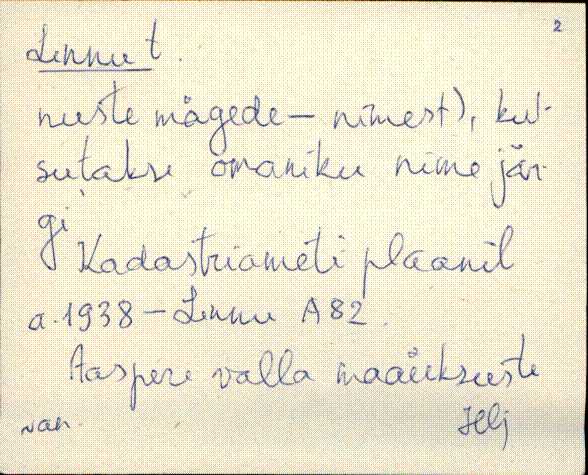 2
Lennu t.
nuste mägede – nimest), kut-
sutakse omaniku nime jär-
gi
Kadastriameti plaanil
a. 1938 – Lennu A 82.
Aaspere valla maaüksuste